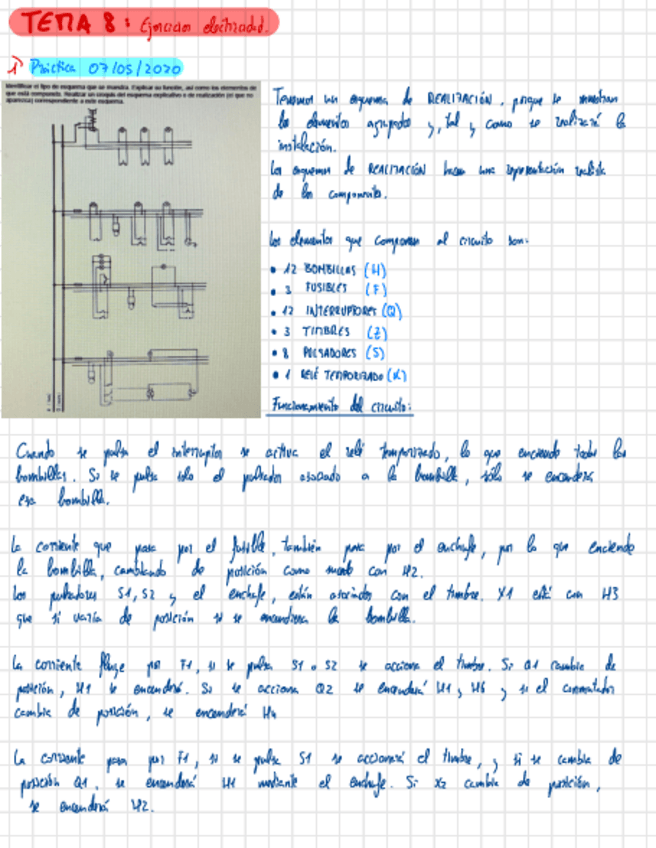 TEMA 8: Ejercicios electricidad.
1) Práctica 07/05/2020
Identificar el tipo de esquema que se muestra. Explicar su función, así como los elementos de
que está compuesto. Realizar un croquis del esquema explicativo o de realización (el que no
aparezca) correspondiente a este esquema.
Tenemos un esquema de REALIZACIÓN, porque se muestran
los elementos agrupados y, tal y como se realizará la
instalación.
Los esquemas de REALIZACIÓN hacen una representación realista
de los componentes.
Los elementos que componen el circuito son:
• 12 BOMBILLAS (H)
• 3 FUSIBLES (F)
• 12 INTERRUPTORES (Q)
• 3 TIMBRES (Z)
• 8 PULSADORES (S)
• 1 RELÉ TEMPORIZADO (K)
Funcionamiento del circuito:
Cuando se pulsa el interruptor se activa el relé temporizado, lo que enciende todas las
bombillas. Si se pulsa solo el pulsador asociado a la bombilla, sólo se encenderá
esa bombilla.
La corriente que pasa por el fusible, también pasa por el enchufe, por lo que enciende
la bombilla, cambiando de posición como con H2.
Los pulsadores S1, S2 y el enchufe, están asociados con el timbre. X1 está con H3
que si varía de posición se encendiera la bombilla.
La corriente fluye por F1, si se pulsa S1 o S2 se acciona el timbre. Si Q1 cambia de
posición, H1 se encenderá. Si se acciona Q2 se encenderá H1 y H6 y si el conmutador
cambia de posición, se encenderá H4
La corriente pasa por F1, si se pulsa S1 se accionará el timbre, y si se cambia de
posición Q1, se encenderá H1 mediante el enchufe. Si X2 cambia de posición,
se encenderá H2.